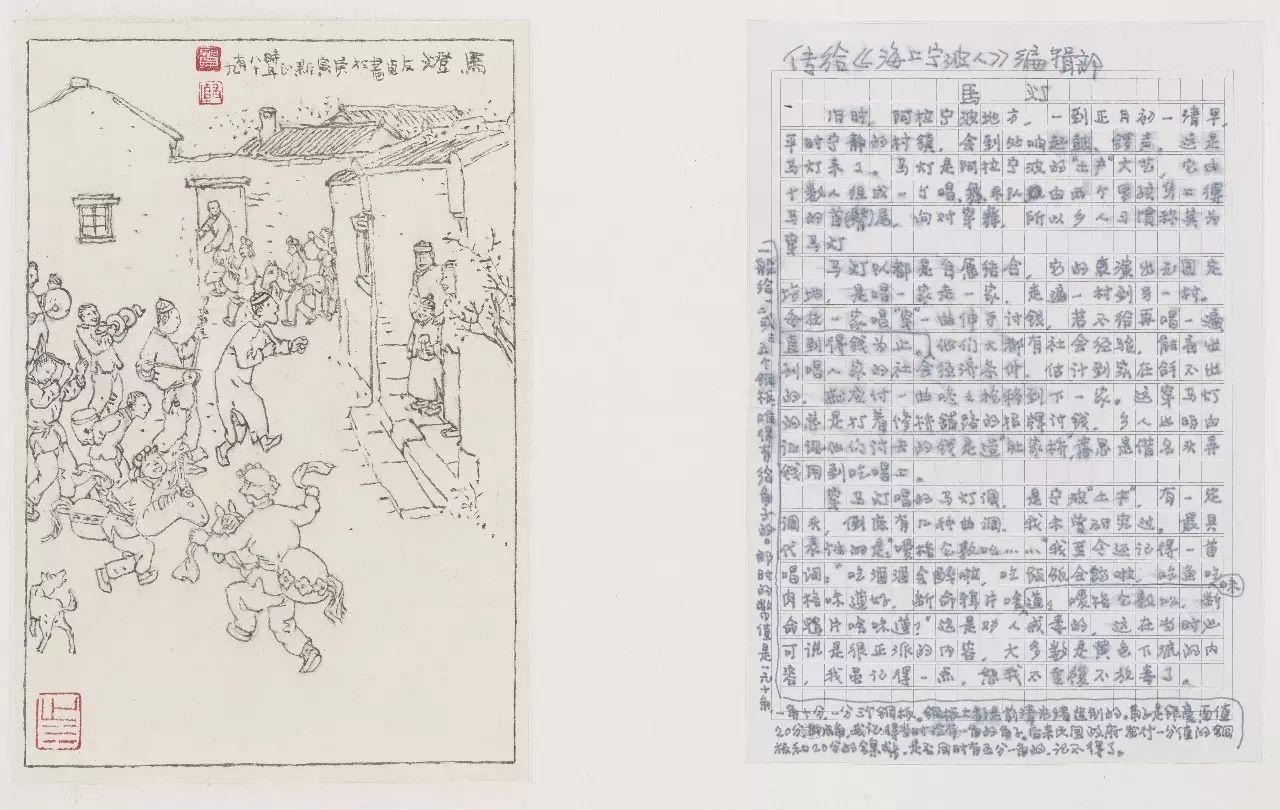 馬燈 友直畫於庚寅新正
传给《海上宁波人》编辑部
馬 灯
旧时，阿拉宁波地方，一到正月初一清早，
平时宁静的村镇，会到处响起鼓、锣声，这是
马灯来了。马灯是阿拉宁波的“土产”文艺，它由
十数人组成一个唱、乐队，由两个男孩穿上得
马的首(臀)尾，向对穿舞，所以乡人习惯称其为
穿马灯
马灯队都是自愿结合，它的表演出无固定
场地，是唱一家走一家，走遍一村到另一村。
每在一家唱“穿”一曲伸手讨钱，若不给再唱一遍
直到得钱为止。他们大都有社会经验，能看出
到唱人家的社会经济条件，估计到实在舒不出
的，就应付一曲 移到下一家。这穿马灯
的总是打着修桥铺路的招牌讨钱，乡人也明白
讥讽他们讨去的钱是造“肚家桥”，意思是借名头弄
钱用到吃喝上。
穿马灯唱的马灯调，是宁波“土产”，有一定
调头，倒底有几种曲调，我未曾研究过。最具
代表性的是“ ……”我至今还记得一首
唱词：“吃酒酒会醉啦，吃饭饭会饱啦，吃鱼吃
肉格味道好，断命鸦片啥 道， 断
命鸦片啥味道？”这是劝人戒毒的，这在当时也
可说是很正派的内容，大多数是黄色下流的内
容，我虽记得一点，恕我不重复不放毒了。
味
一般给一、二或三、五个铜板，难得有给角子的。那时的币值是一元十角
一角十分，一分三个铜板。铜板大都是前清 造制的，角子是银毫面值
20分 ，我记得当时没有一角的角子。后来民国政府发行一分值的铜
板和20分的镍币，是否同时有五分一角的，记不得了。